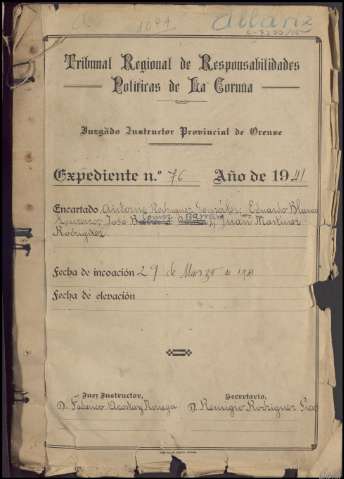 1094
Allariz
Tribunal Regional de Responsabilidades
Políticas de La Coruña
Juzgado Instructor Provincial de Orense
Expediente n.° 76 Año de 1941
Encartado Antonio Rodriguez González, Eduardo Blanco
José y Juan Martinez
Rodriguez
Fecha de incoación 29 de Marzo de 1941
Fecha de elevación
Juez Instructor, Secretario,
D. Federico Acosta Noriega D. Remigio Rodriguez